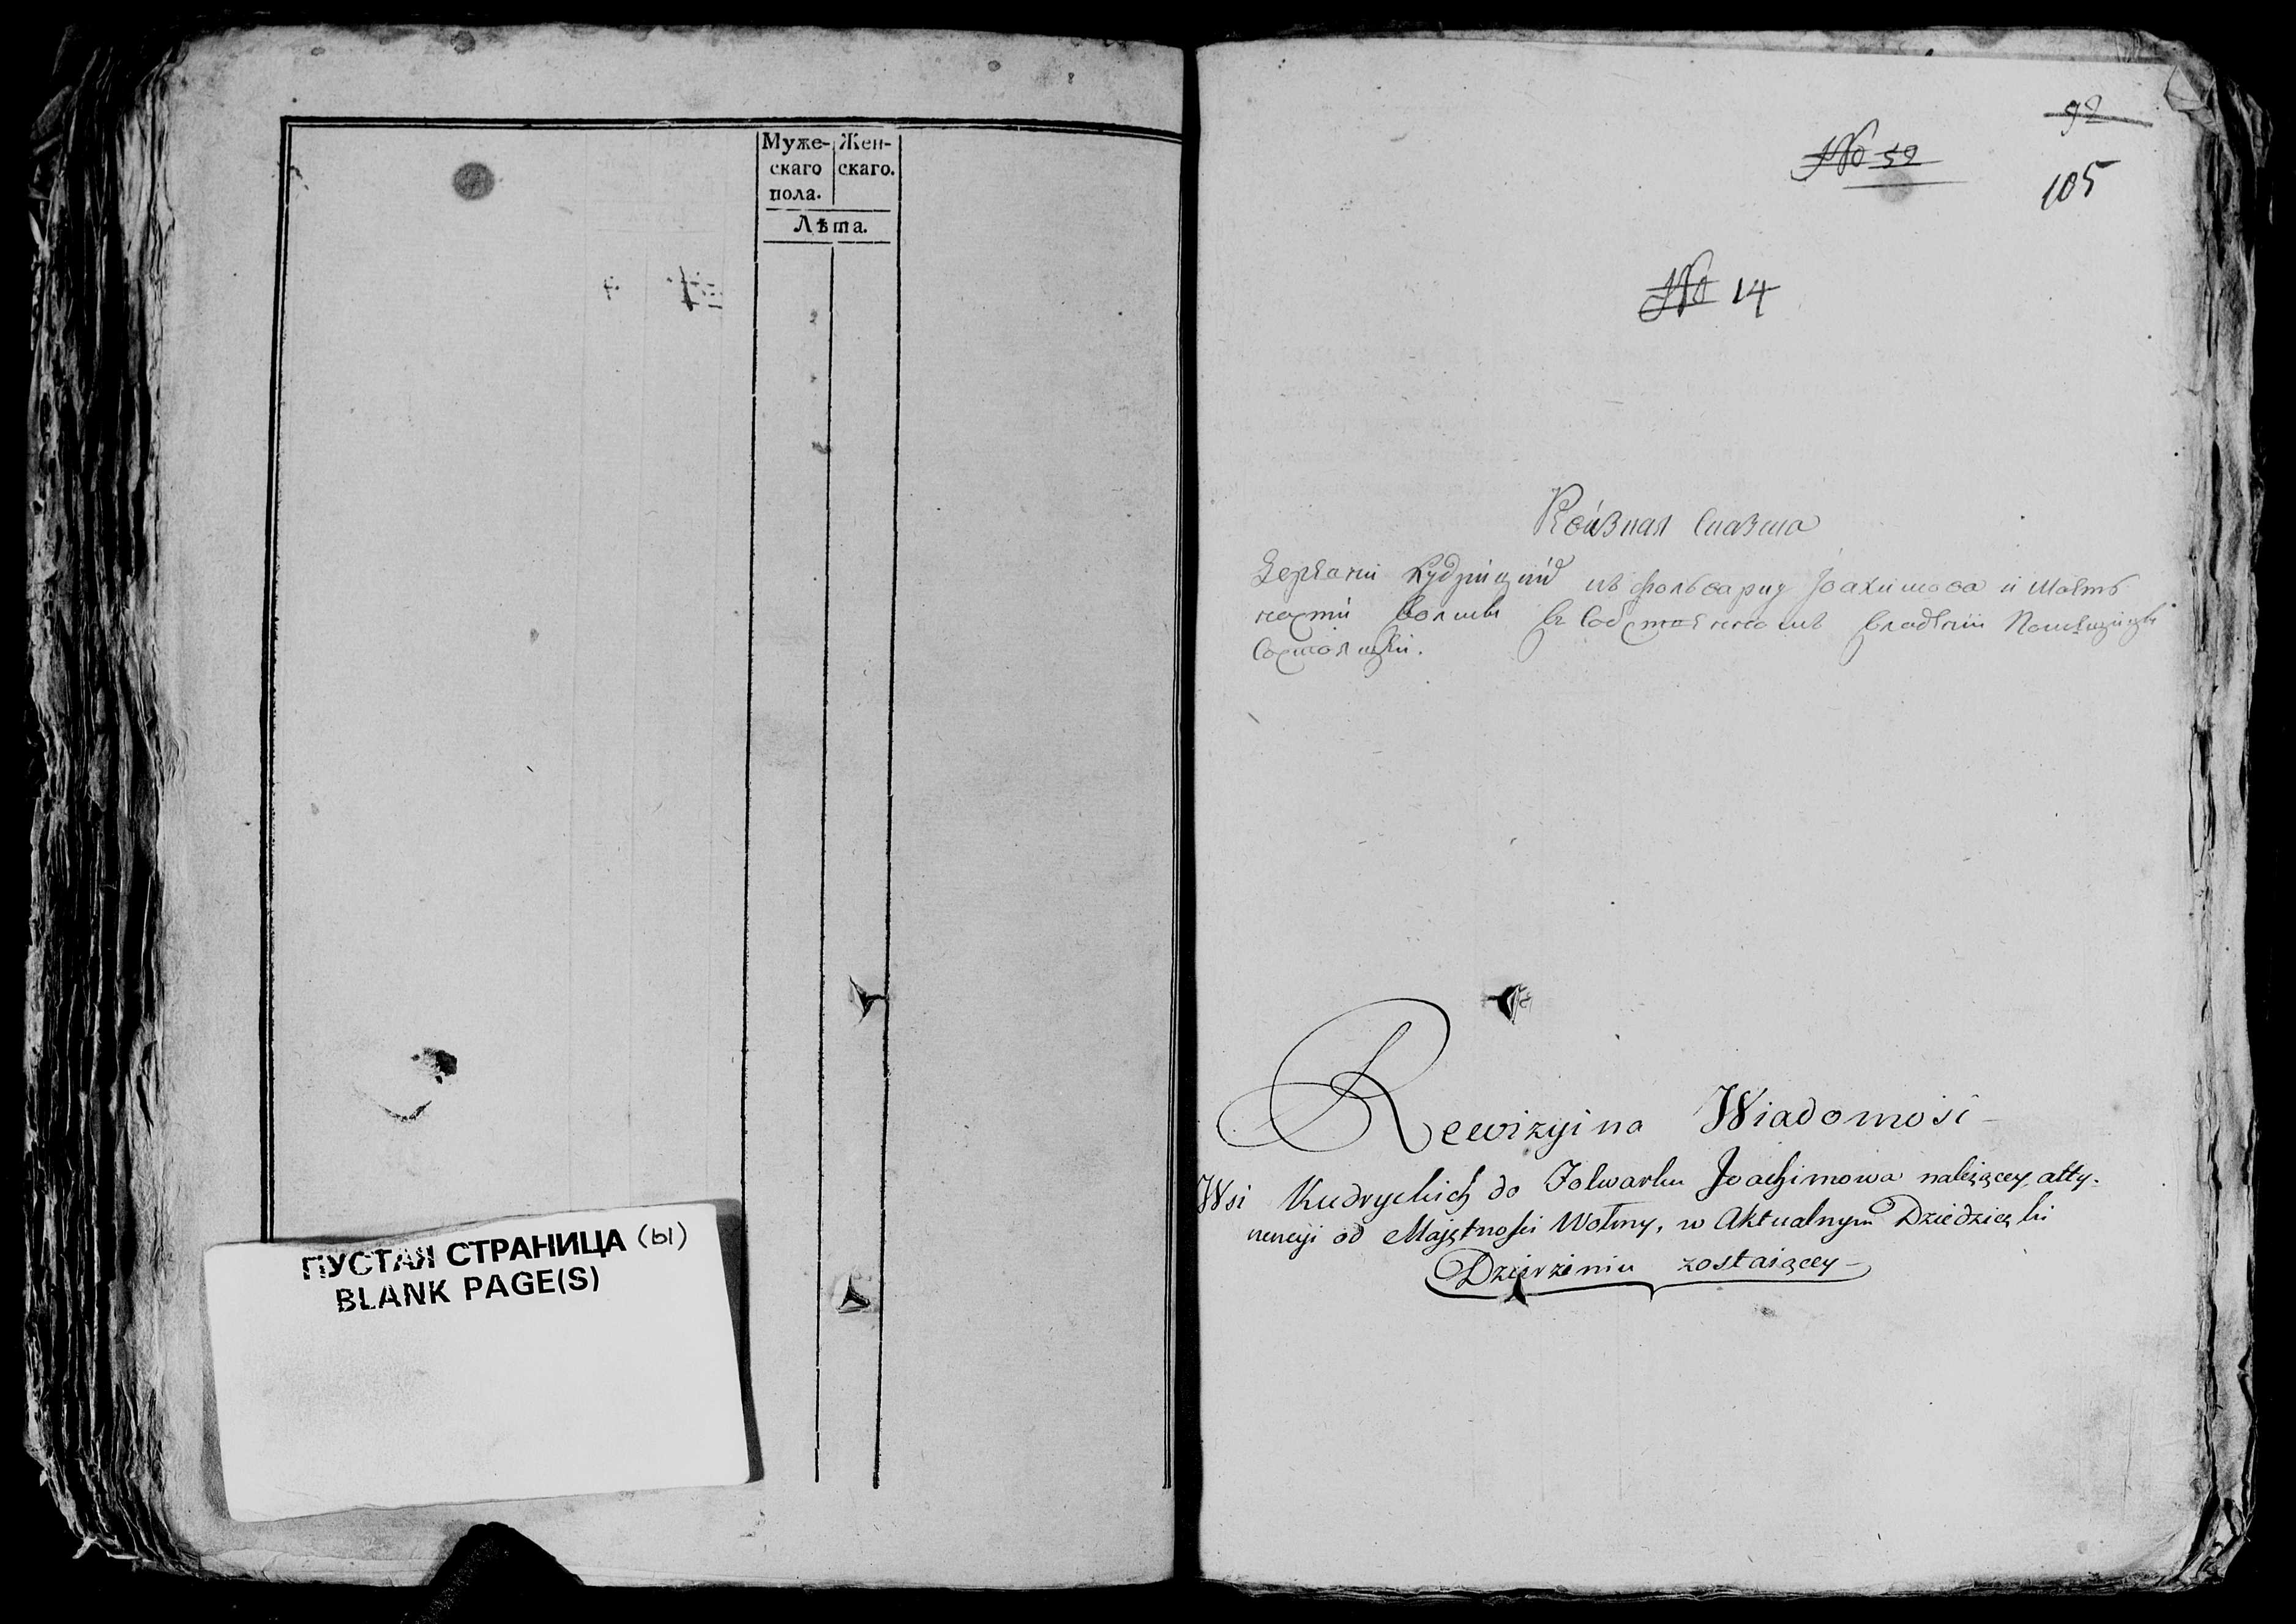 Муже-
скаго
пола.
Жен-
скаго.
Лѣта.
ПУСТАЯ СТРАНИЦА (Ы)
BLANK PAGE(S)
92
№ 52
105
№ 14
Ревизная Сказка
Кудрицкой къ фольварку Іоахимова и
Волны въ владѣніи Помѣщицы
состоящей.
Rewizyina Wiadomość
Wsi Kudryckich do Folwarku Joachimowa należącey, atty-
nencyi od Majętności Wolny, w Aktualnym Dziedziczki
Dzierżeniu zostaiącey